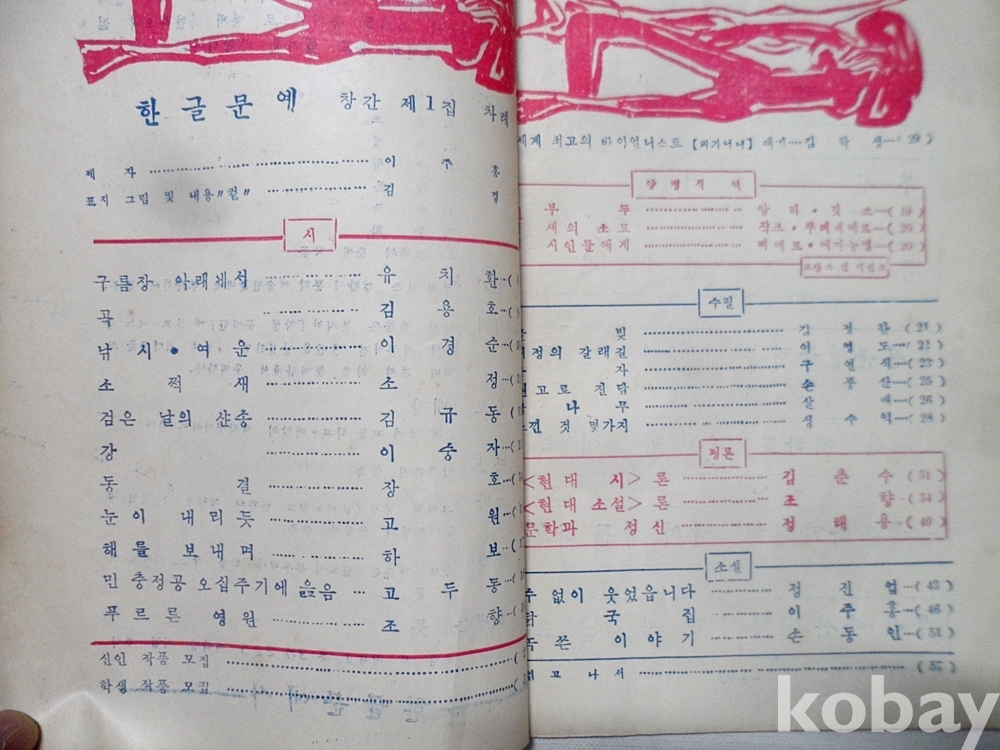 한글문예 창간 제1집 차례
제 자 이 주 홍
표지 그림 및 내용〃컽〃 김
시
구름장 아래에서 유 치 환
곡 김 용 호
낚 시 · 여 운 이 경 순
소 쩍 새 조 정
검은 날의 산송 김 규 동
강 이 숭 자
동 결 장 호
눈이 내리듯 고 원
해를 보내며 하 보
민 충정공 오십주기에 읊음 고 두 동
푸르른 영원 조 향
신인 작품 모집
학생 작품 모집
세계 최고의 바이얼니스트 [파가니니] 얘기 김 학 생 ( 29 )
부 두 ( 19 )
새의 소고 ( 20 )
시인들에게 ( 20 )
수필
빛 김 정 한 ( 21 )
정의 갈래길 이 영 도 ( 22 )
자 구 연 식 ( 23 )
고료 진담 손 풍 산 ( 25 )
나 무 살 매 ( 26 )
낀 것 몇가지 성 수 익 ( 28 )
평론
<현 대 시> 론 김 춘 수 ( 31 )
<현대 소설> 론 조 향 ( 34 )
문학과 정신 정 태 용 ( 40 )
소설
없이 웃었읍니다 정 진 업 ( 43 )
국 집 이 주 홍 ( 46 )
쓴 이야기 손 동 인 ( 51 )
고 나 서 ( 57 )
kobay